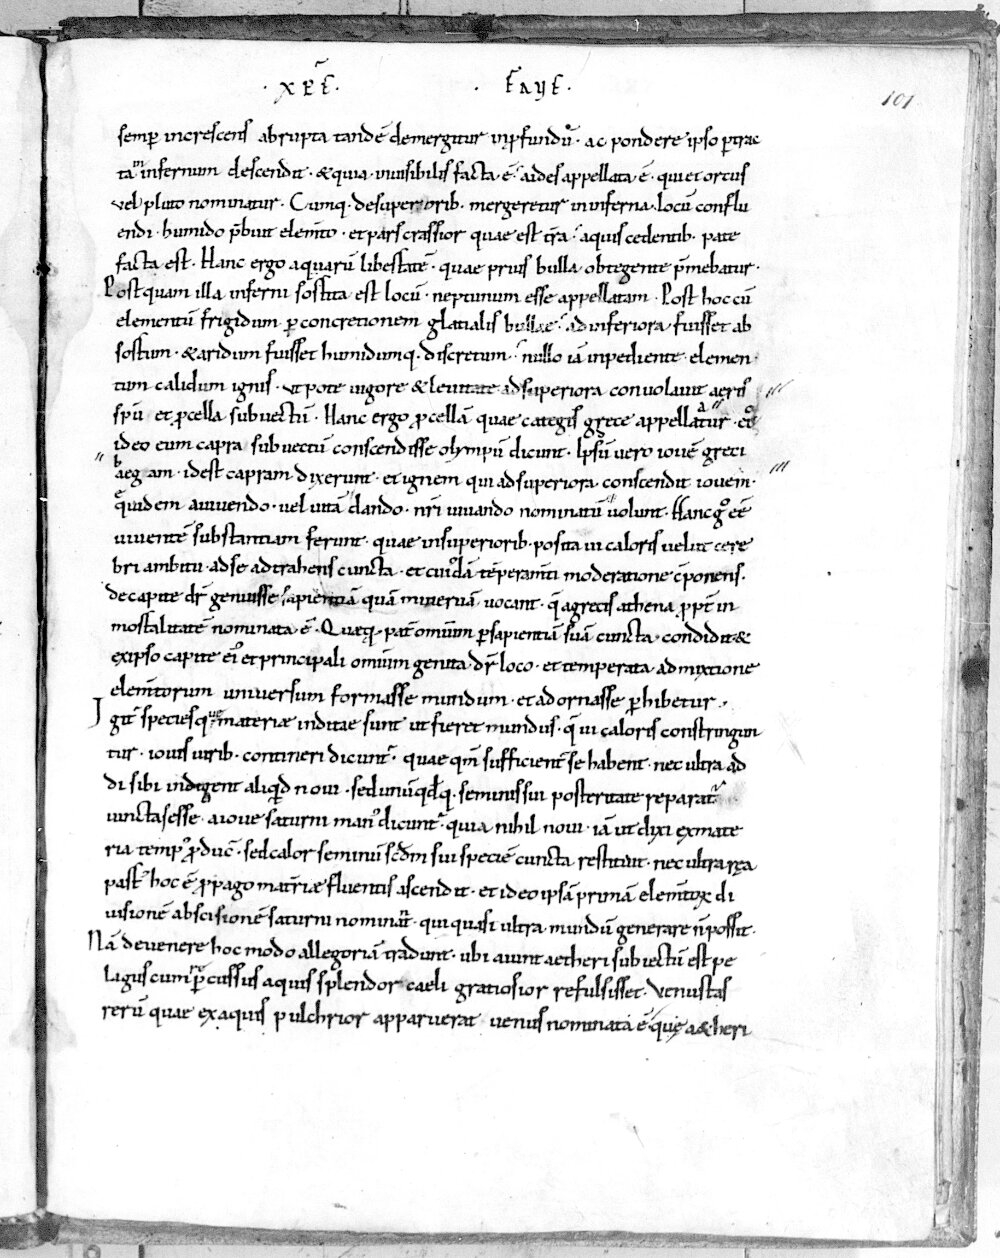 · xp̄c · · faus ·
101
semp increscens abrupta tandē demergitur inpfundū · ac pondere ipso ptrac
tā infernum descendit · &quia · inuisibilis facta ē · aides appellata ē · qui et orcus
vel pluto nominatur · Cumq · desuperiorib · mergeretur in inferna · locū conflu
endi · humido p̄buit elem̄to · et pars crassior quae est tr̄a · aquis cedentib · pate
facta est · Hanc ergo aquarū libertatē · quae prius bulla obtegente p̄mebatur ·
Postquam illa inferni sortita est locū · neptunum esse appellatam · Post hoc cū
elementū frigidum p concretionem glatialis bullae · ad inferiora fuisset ab
sortum · &aridum fuisset humidumq · discretum · nullo iā inpediente elemen
tum calidum ignis · ut pote uigore & leuitate ad superiora conuolauit aeris
sp̄u et pcella subuectū · Hanc ergo pcellā quae categis grece appellatur · et
ideo eum capra subuectū conscendisse olympū dicunt · Ipsū uero iouē greci
aeg am · idest capram dixerunt · et ignem qui ad superiora conscendit iouem ·
quidem auuendo · vel uitā dando · nr̄i iuuando nominatū uolunt · Hanc g̊ eē
uiuentē substantiam ferunt · quae in superiorib · posita ui caloris velut cere
bri ambitu · ad se adtrahens cuncta · et cuidā tēperam̄ti moderatione cponens ·
de capite dr̄ genuisse sapientiā quā mineruā uocant · q̄ a grecis athena ppt̄ in
mortalitatē nominata ē · Quaeq · pat̄ omium p sapientiā suā cuncta condidit &
ex ipso capite ei et principali omium genita dr̄ loco · et temperata admixtione
elem̄torum uniuersum formasse mundum · et adornasse phibetur ·
Igit̄ species que materiae inditae sunt ut fieret mundus · q̄ ui caloris constringun
tur · iouis uirib · contineri dicunt̄ · quae qm̄ sufficient̄ se habent · nec ultra ad
di sibi indigent aliqd noui · sed unūqdq · seminis sui posteritate reparat̄
iuncta sesse · a ioue saturni man dicunt̄ · quia nihil noui · iā ut dixi ex mate
ria temp pduc̄ · sed calor seminū scdm sui speciē cuncta restituit · nec ultra rea
past̄ hoc ē ppago matr̄iae fluentis ascendit · et ideo ipsā primā elem̄tox di
uisionē abscisionē saturni nominat̄ · qui quasi ultra · mundū generare n̄ possit ·
Nā de uenere hoc modo allegoriā tradunt · ubi aiunt aetheri subiectū est pe
lagus cum p̄cussus aquis splendor caeli gratiosior refulsisset · Venustas
rerū quae ex aquis pulchrior apparuerat uenus nominata ē que a&heri